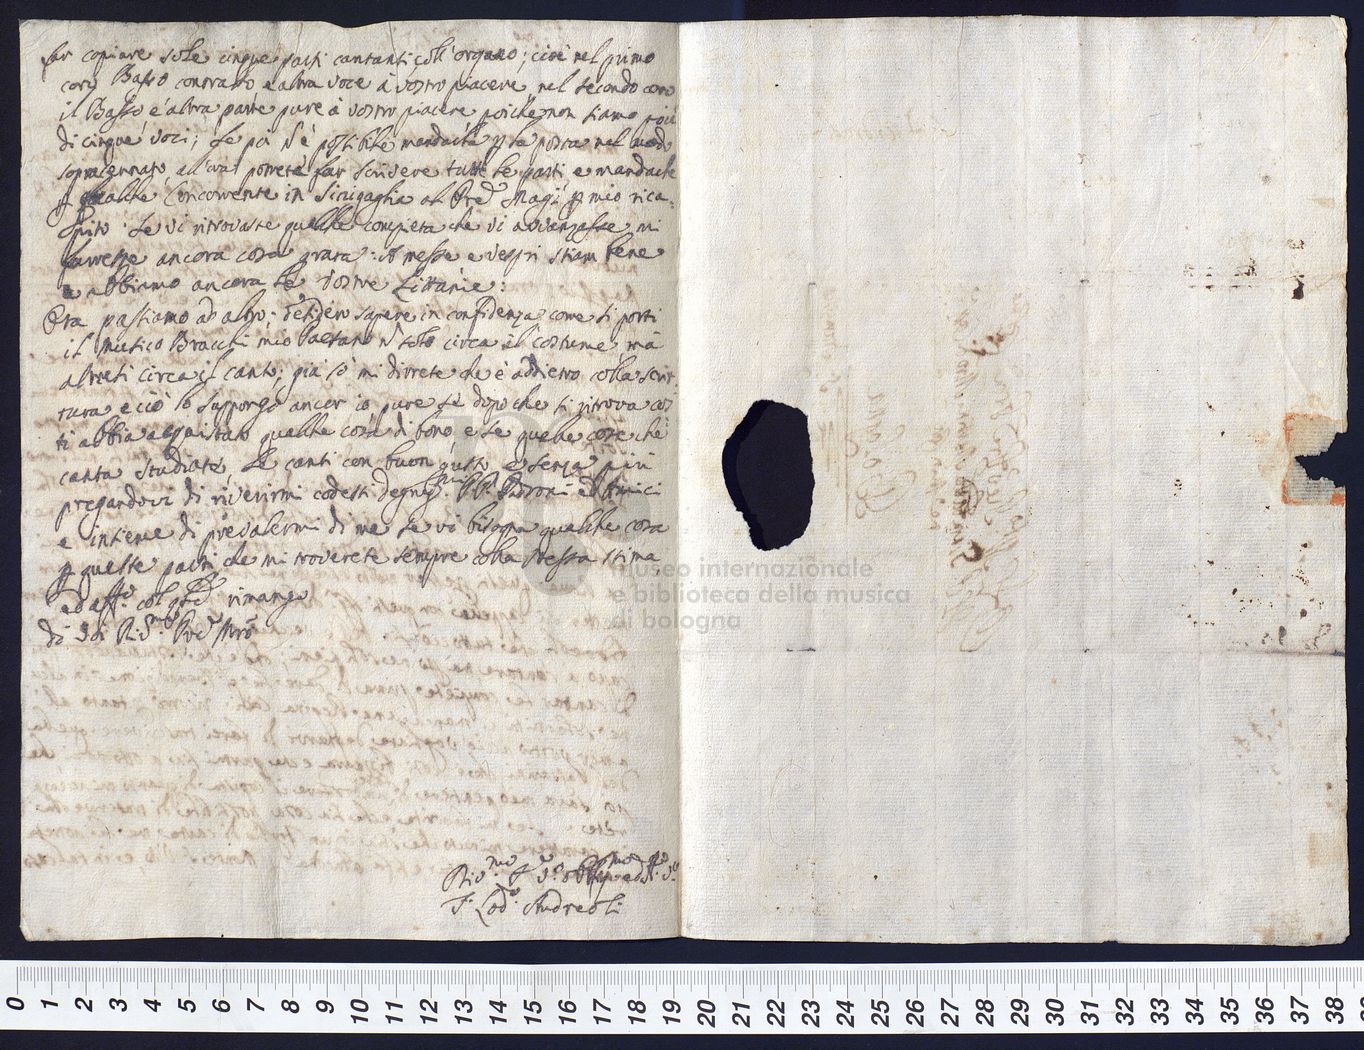 far copiare sole cinque parti cantanti coll'organo; cioè nel primo
coro Basso contralto e altra voce à vostro piacere, nel secondo coro
il Basso e altra parte pure à vostro piacere poiche non siamo più
di cinque voci; se poi è possibile mandarle la posta nel modo
sopracennato, all'ora potrete far scrivere tutte le parti e mandarle
qualche Concorrente in Sinigaglia al Magi mio rica-
pito. Se vi ritrovaste qualche compieta che vi avvanzasse mi
farreste ancora cosa grata: A messe e vespri stiam bene
e abbiamo ancora le vostre Littanie:
Ora passiamo ad altro; desidero sapere in confidenza come si porti
il Musico Bracchi mio Paesano solo circa il costume, mà
altresi circa il canto; già sò mi dirrete che è addietro colla scrit-
tura e ciò lo suppongo ancor io, pure se dopo che si ritrova cos-
ti abbia acquistato qualche cosa di bono e se quelle cose che
canta studiate, le canti con buon gusto, e senza più
pregandovi di riverirmi codesti degnissmi PP. Padroni ed Amici
e insieme di prevalermi di me se vi bisogna qualche cosa
queste parti che mi troverete sempre colla stessa stima
ed affo. col rimango
di voi Rivmo Pre Mro
Andreoli
museo internazionale
e biblioteca della musica
di bologna
0 1 2 3 4 5 6 7 8 9 10 11 12 13 14 15 16 17 18 19 20 21 22 23 24 25 26 27 28 29 30 31 32 33 34 35 36 37 38